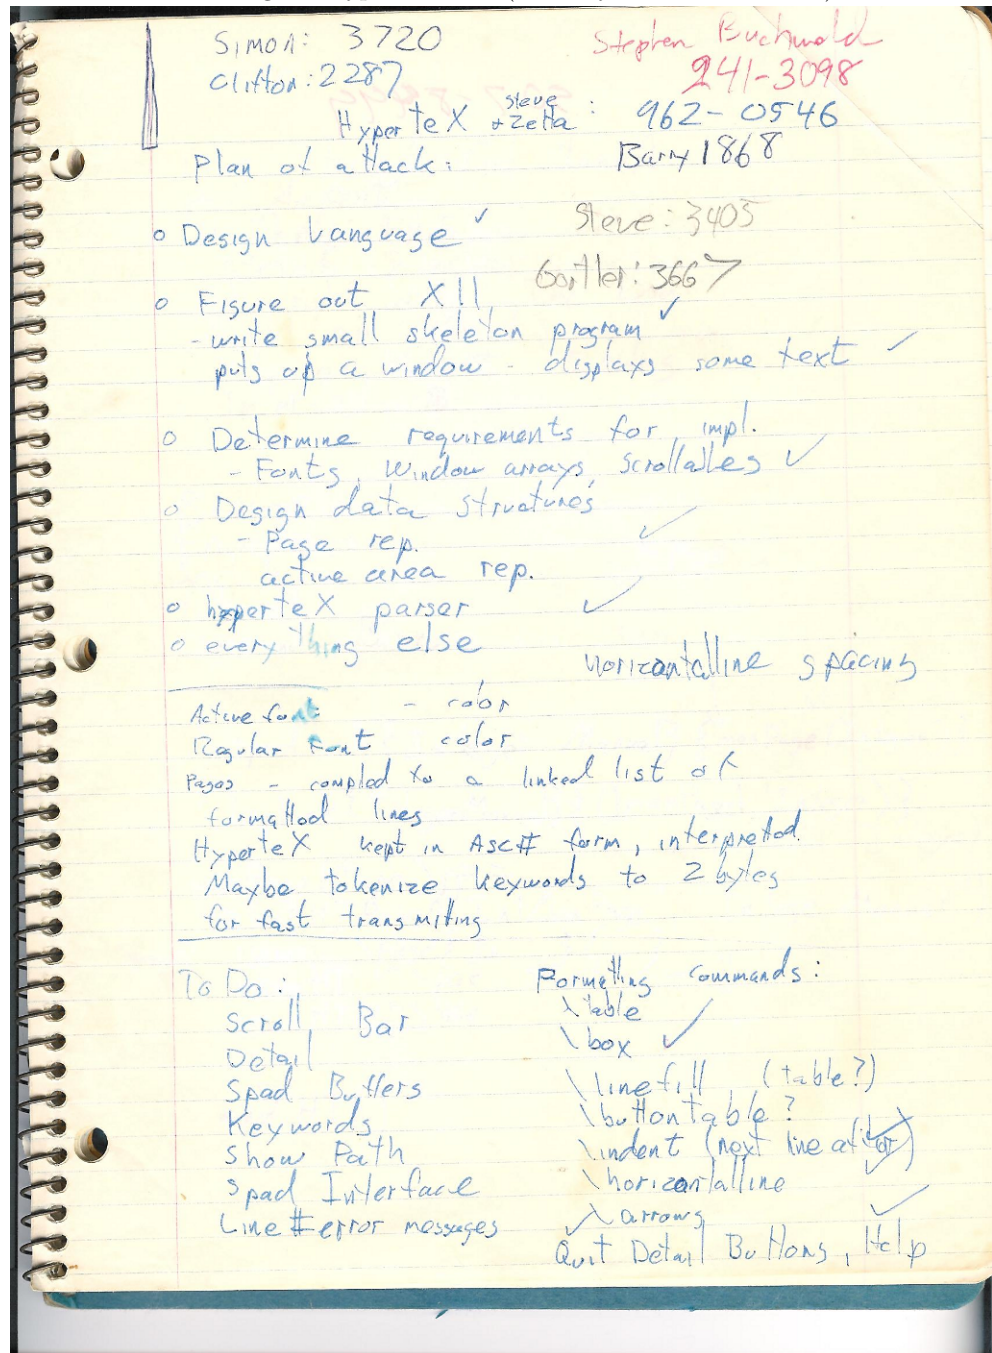 Simon: 3720
Stephen Buchwald
Clifton: 2287
241-3098
HyperteX steve + Zetta : 962-0546
Plan of attack:
Barry 1868
Steve: 3405
o Design Language ✓
Gortler: 3667
o Figure out X11
- write small skeleton program ✓
puts up a window - displays some text ✓
o Determine requirements for impl.
- Fonts, Window arrays, Scrollables ✓
o Design data structures
- Page rep. ✓
active area rep.
o hyperteX parser ✓
o everything else
horizontalline spacing
Active font - color
Regular Font color
Pages - compiled to a linked list of
formatted lines
HyperteX kept in ASCII form, interpretted.
Maybe tokenize keywords to 2 bytes
for fast transmitting
To Do:
Scroll Bar
Detail
Spad Buffers
Keywords
Show Path
Spad Interface
Line # error messages
Formatting commands:
\table
\box ✓
\linefill (table?)
\buttontable?
\indent (next line after)
\horizontalline ✓
✓ \arrows
Quit Detail Buttons, Help ✓